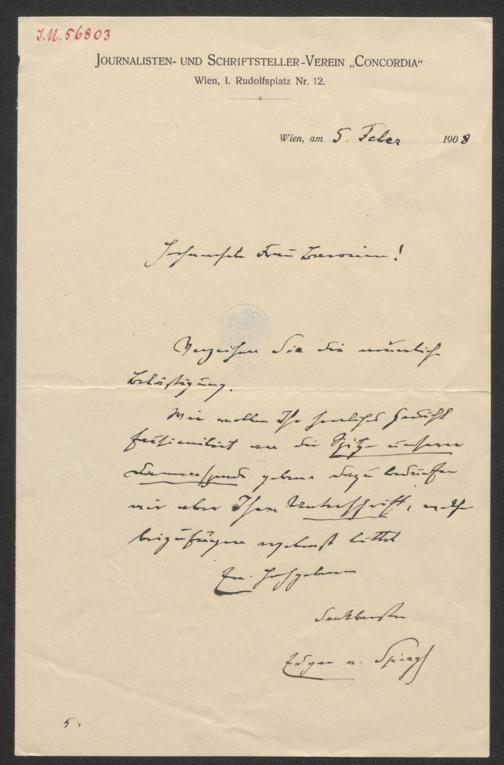 J.N. 56803
JOURNALISTEN- UND SCHRIFTSTELLER-VEREIN „CONCORDIA“
Wien, I. Rudolfsplatz Nr. 12.
Wien, am 5. Feber 1908
Frau Baronin!
Verzeihen Sie die
Belästigung.
Wir wollen Ihr herrliches Gedicht
an die Spitze unserer
Damenspende geben dazu bedürfen
wir aber Ihrer Unterschrift,
beizufügen ergebenst bittet
Eu. Hochgeboren
dankbarster
Edgar v. Spiegl
5